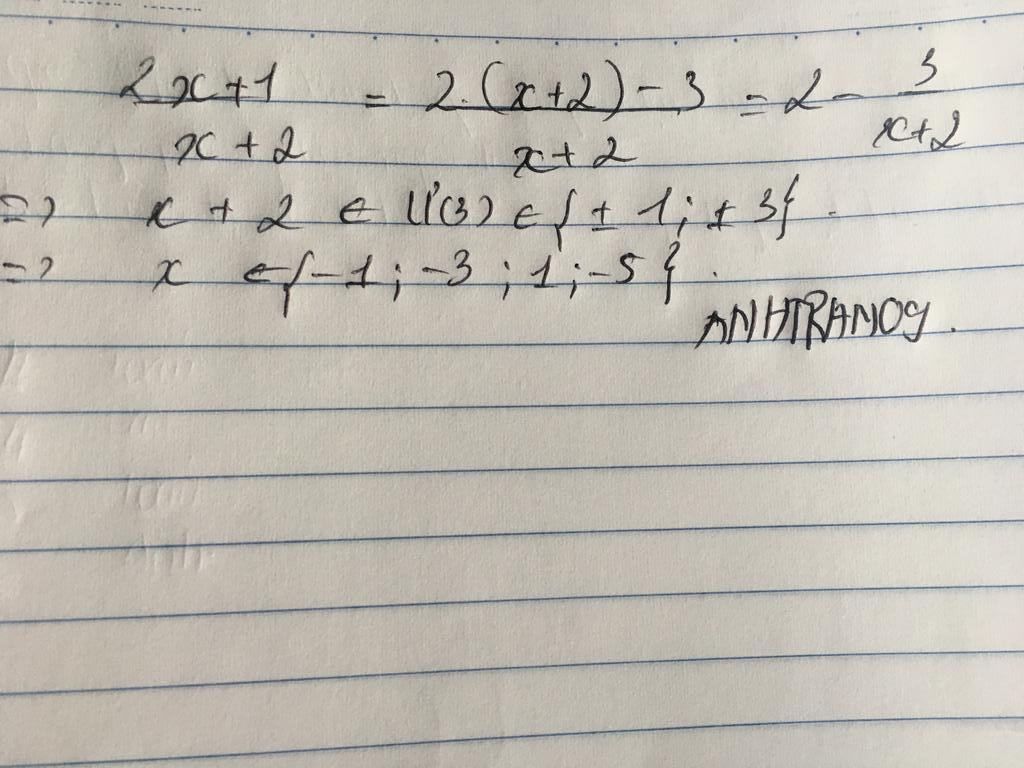 2x+1 / x+2 = 2.(x+2)-3 / x+2 = 2 - 3 / x+2
=> x + 2 ∈ Ư(3) ∈ {±1; ±3}.
=> x ∈ {-1; -3; 1; -5}.
ANHTRAN09.